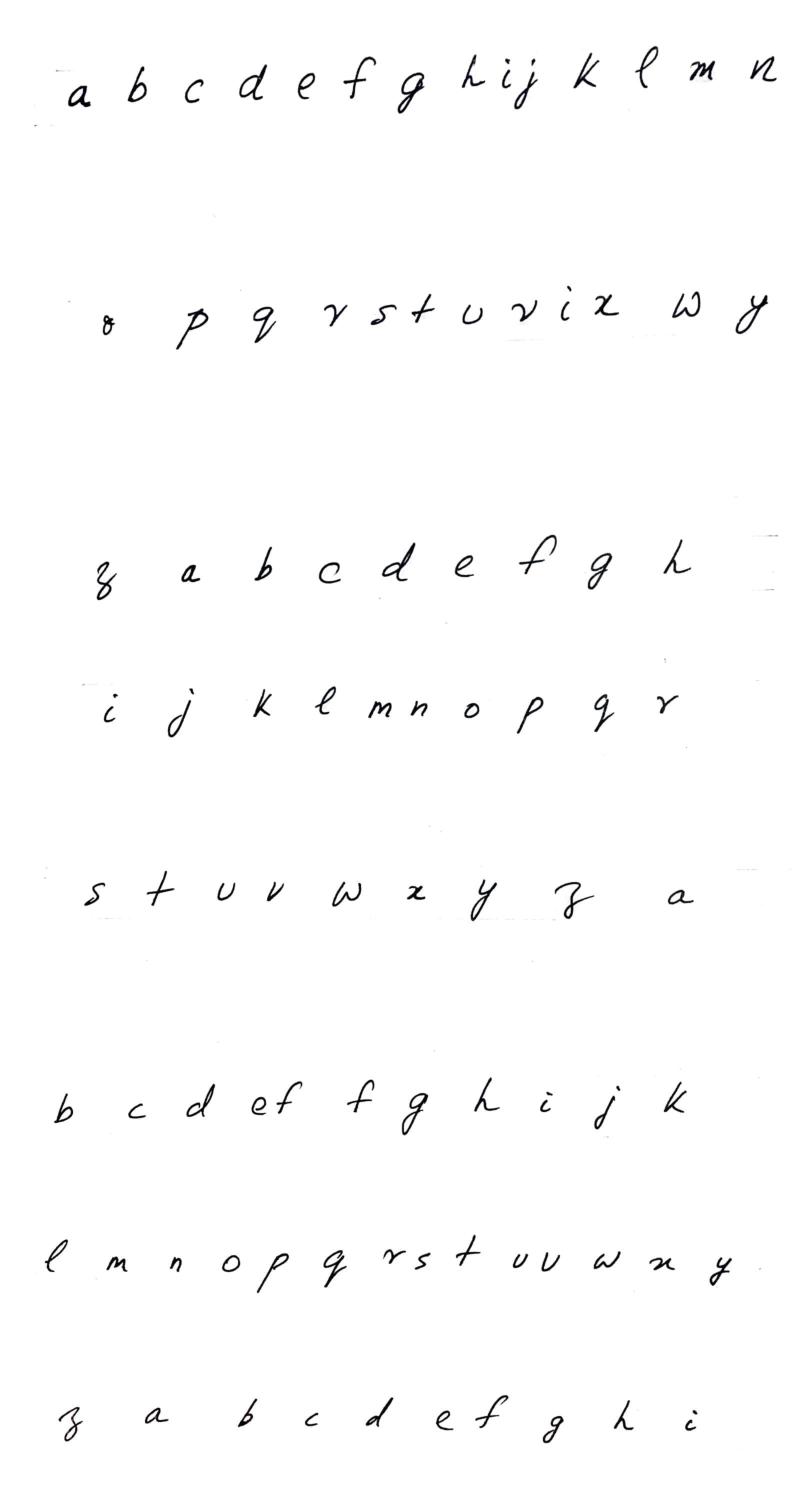 a b c d e f g h i j k l m n
o p q r s t u v i x w y
z a b c d e f g h
i j k l m n o p q r
s t u v w x y z a
b c d e f f g h i j k
l m n o p q r s t u v w x y
z a b c d e f g h i